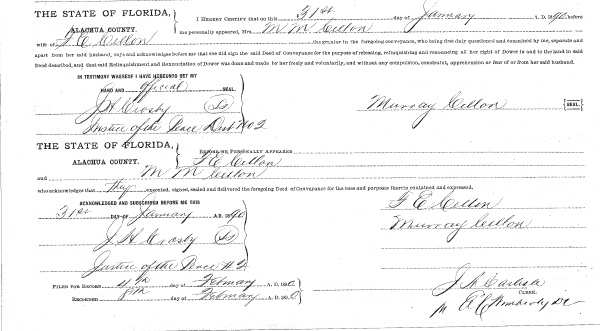 THE STATE OF FLORIDA,
ALACHUA COUNTY.
I HEREBY CERTIFY that on this 31st day of January A. D. 1890 before
me personally appeared, Mrs. M M Cellon
wife of F E Cellon the grantor in the foregoing conveyance, who being first duly questioned and examined by me, separate and
apart from her said husband, says and acknowledges before me that she did sign the said Deed of Conveyance for the purpose of releasing, relinquishing and renouncing all her right of Dower in and to the land in said
Deed described, and that said Relinquishment and Renunciation of Dower was done and made by her freely and voluntarily, and without any compulsion, constraint, apprehension or fear of or from her said husband.
IN TESTIMONY WHEREOF I HAVE HEREUNTO SET MY
HAND AND official SEAL.
J H Crosby (Ls)
Justice of the Peace Dist No 2
Murray Cellon {SEAL.}
THE STATE OF FLORIDA,
ALACHUA COUNTY.
BEFORE ME PERSONALLY APPEARED
F E Cellon
and M M Cellon
who acknowledges that They executed, signed, sealed and delivered the foregoing Deed of Conveyance for the uses and purposes therein contained and expressed.
ACKNOWLEDGED AND SUBSCRIBED BEFORE ME THIS
31st DAY OF January A. D. 1890
J H Crosby (Ls)
Justice of the Peace # 2
F E Cellon
Murray Cellon
FILED FOR RECORD 4th day of February A. D. 1890
RECORDED 8th day of February 1890
J A Carlisle
CLERK.